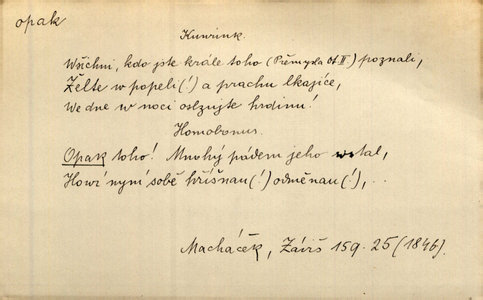 opak
Kunrink
Wšichni, kdo jste krále toho (Přemysla Ot. II) poznali,
Želte w popeli (!) a prachu lkajíce,
We dne w noci oslzujte hrdinu!
Homobonus.
Opak toho! Mnohý pádem jeho wstal,
Howí nyní sobě hříšnau (!) odměnau (!), ..
Macháček, Záviš 159. 25 (1846).